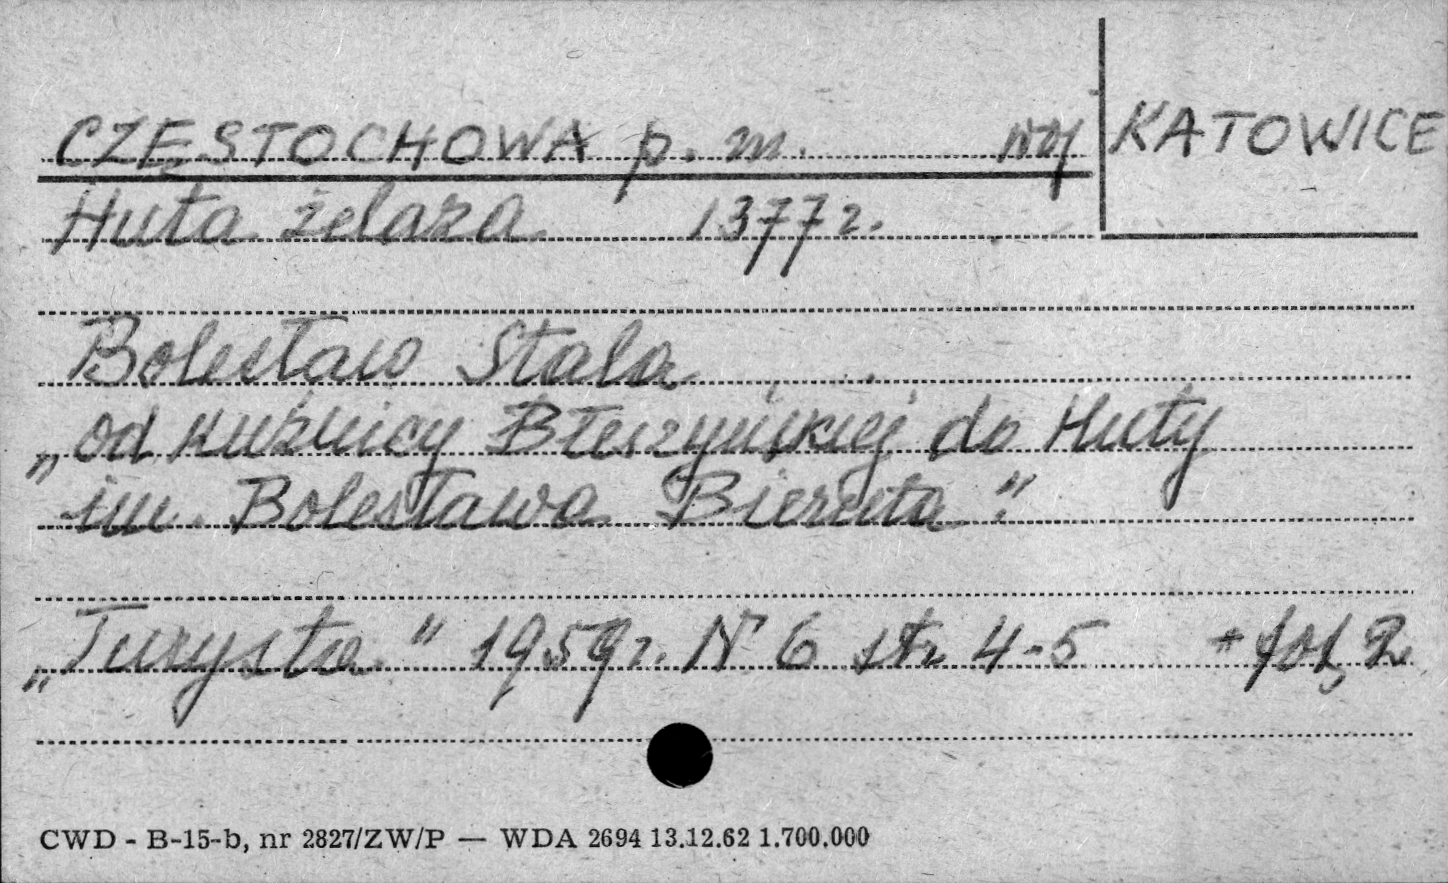 CZĘSTOCHOWA p. m. woj KATOWICE
Huta żelaza 1377 r.
Bolesław Stala
„od kuźnicy Błeszyńskiej do Huty
im. Bolesława Bieruta"
„Turysta" 1959 r. N 6 str. 4-5 + fot, 2
CWD - B-15-b, nr 2827/ZW/P — WDA 2694 13.12.62 1.700.000